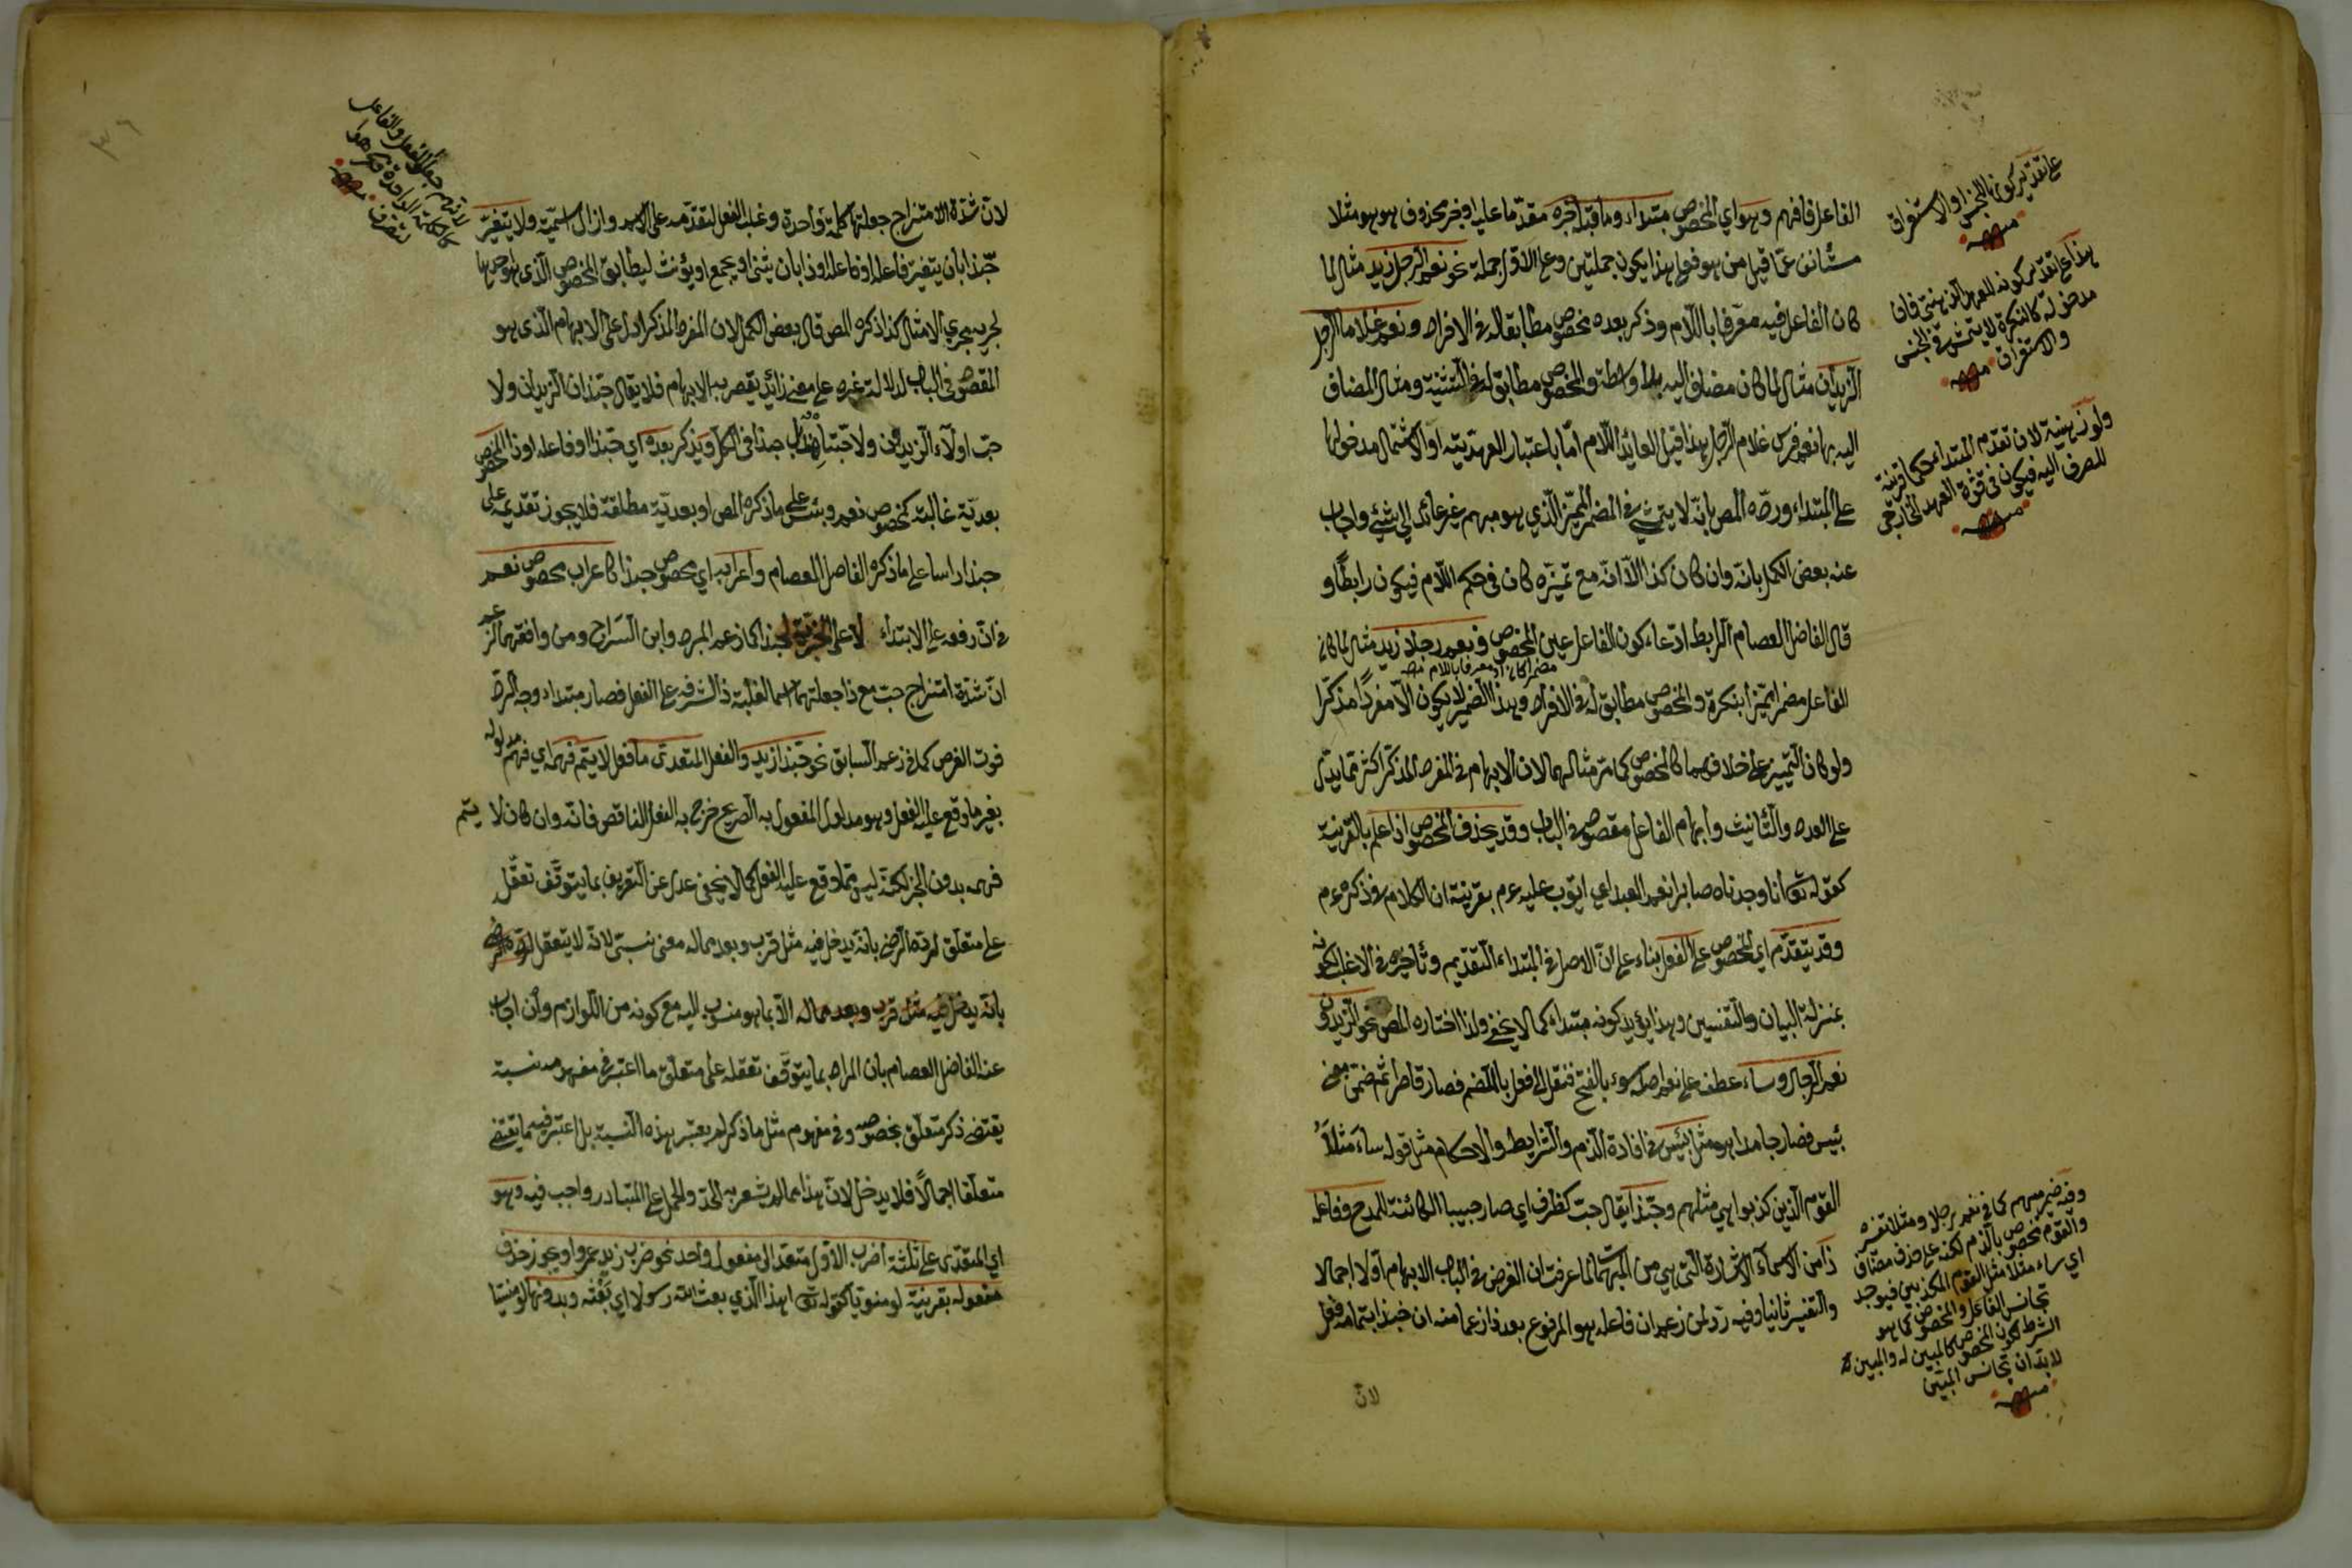 الفاعل فافهم وهو اي المخصوص مبتداء وما قبله خبره مقدما عليه او خبر محذوف هو هو مثلا
مستأنف عما قيل من هو فعلى هذا يكون جملتين وعلى الاول جملة نحو نعم الرجل زيد مثال لما
كان الفاعل فيه معرفا باللام وذكر بعده مخصوص مطابقا له في الافراد ونعم غلاما الرجل
الزيدان مثال لما كان مضافا اليه بلا واسطة والمخصوص مطابق له في التثنية ومثال المضاف
اليه بها نعم فرس غلام الرجل هذا قيل العائد اللام اما باعتبار العهدية او الاشتمال مدخولها
على المبتداء ورده المص بانه لا يتمشى في المضمر المميز الذي هو مبهم غير عائد الى شيء واجاب
عنه بعض الكمل بانه وان كان كذا الا انه مع تميزه كان في حكم اللام فيكون رابطا و
قال الفاضل العصام الرابط ادعاء كون الفاعل عين المخصوص ونعم رجلا زيد مثال لما كان
مضمرا كان او معرفا باللام منه
الفاعل مضمرا مميزا بنكرة والمخصوص مطابق له في الافراد وهذا الضمير لا يكون الا مفردا مذكرا
ولو كان التمييز على خلافهما كالمخصوص كما مر مثالهما لان الابهام في المفرد المذكر اكثر مما يدل
على العدد والتأنيث وابهام الفاعل مقصود في الباب وقد يحذف المخصوص اذا علم بالقرينة
كقوله تع انا وجدناه صابرا نعم العبد اي ايوب عليه م بقرينة ان الكلام في ذكره م
وقد يتقدم اي المخصوص على الفعل بناء على ان الاصل في المبتداء التقديم وتأخيره في الاغلب لكونه
بمنزلة البيان والتفسير وهذا يؤيد كونه مبتداء كما لا يخفى ولذا اختاره المص نحو الزيدون
نعم الرجال وساء عطف على نعم اصله سوء بالفتح فنقل الى فعل بالضم فصار قاصرا ثم ضمن معنى
بئس فصار جامدا وهو مثل بئس في افادة الذم والشرايط والاحكام مثل قوله ساء مثلا
القوم الذين كذبوا اي مثلهم وحبذا يقال حب كظرف اي صار حبيبا الكائنة للمدح وفاعله
ذا من الاسماء الاشارة التي هي من المبهمات لما عرفت ان الغرض في الباب الابهام اولا اجمالا
والتفسير ثانيا وفيه رد لمن زعم ان فاعله هو المرفوع بعد ذا زعما منه ان حبذا بتمامه فعل
لان
على تقدير كونها للجنس او الاستغراق
منه
هذا على تقدير كونه للعهد الذهني فان
مدخوله كالنكرة لا يتمشى في الجنس
والاستغراق منه
ولو ذهنية لان تقدم المبتداء حكما قرينة
للصرف اليه فيكون في قوة العهد الخارجي
منه
وفيه ضمير مبهم كما في نعم رجلا ومثلا تفسيره
والقوم مخصوص بالذم لكنه على حذف مضاف
اي ساء مثلا مثل القوم المكذبين فيوجد
تجانس الفاعل والمخصوص كما هو
الشرط لكون المخصوص كالمبين له والمبين
لابد ان يجانس المبين
منه
لان شدة الامتزاج جعلتها كلمة واحدة وغلب الفعل لتقدمه على الاسم وازال اسميته ولا يتغير
حبذا بان يتغير فاعله او فاعله او ذا بان يثنى او يجمع او يؤنث ليطابق المخصوص الذي
لجريه مجرى الامثال كذا ذكره المص قال بعض الكمل لان المفرد المذكر ادل على الابهام الذي هو
المقصود في الباب لدلالة غيره على معنى زائد يقصر به الابهام فلا يقال حبذان الزيدان ولا
حب اولاء الزيدون ولا حبتا هند بل حبذا في الكل ويذكر بعده اي حبذا او فاعله او ذا المخصوص
بعدية غالبة كمخصوص نعم وبئس على ما ذكره المص او بعدية مطلقة فلا يجوز تقديمه على
حبذا راسا على ما ذكره الفاضل العصام واعرابه اي مخصوص حبذا كاعراب مخصوص نعم
في ان رفعه على الابتداء لا على الخبرية لحبذا كما زعم المبرد وابن السراج ومن وافقهما لزعم
ان شدة امتزاج حب مع ذا جعلتهما اسما لغلبة ذا لشرفه على الفعل فصار مبتداء وجه الرد
فوت الغرض كما في زعم السابق نحو حبذا زيد والفعل المتعدى ما فعل لا يتم فهمه اي فهم مدلوله
بغير ما وقع عليه الفعل وهو مدلول المفعول به الصريح خرج به الفعل الناقص فانه وان كان لا يتم
فهمه بدون الخبر لكنه ليس مما وقع عليه الفعل كما لا يخفى عدل عن التعريف بما يتوقف تعقله
على متعلق لرد الرضى بانه يدخل فيه مثل قرب وبعد مما له معنى نسبتي لانه لا يتعقل
بانه يدخل فيه مثل قرب وبعد مما له الا بما هو منسوب اليه مع كونه من اللوازم وان اجاب
عنه الفاضل العصام بان المراد بما يتوقف تعقله على متعلق ما اعتبر في مفهومه نسبة
يقتضى ذكر متعلق بخصوصه وفي مفهوم مثل ما ذكر لم يعتبر هذه النسبة بل اعتبر فيه ما يقتضى
متعلقا اجمالا فلا يدخل لان هذا مما لم يشعر به الحد والحمل على المتبادر واجب فيه وهو
اي المتعدى على ثلثة اضرب الاول متعد الى مفعول واحد نحو ضرب زيد عمروا ويجوز حذف
مفعوله بقرينة لو منويا كقوله تع اهذا الذي بعث الله رسولا اي بعثه وبدونها لو منسيا
لانهم جعلوا الفعل والفاعل
كالكلمة الواحدة فكرهوا
تصرف منه
٣٦